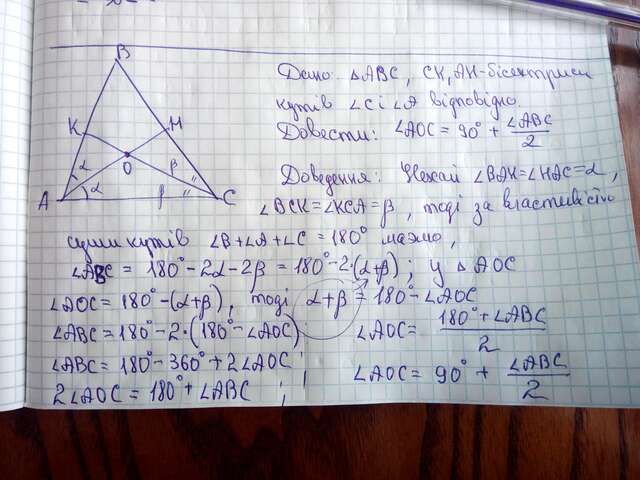 Дано: △ABC, CK, AH - бісектриси
кутів ∠C і ∠A відповідно
Довести: ∠AOC = 90° + ∠ABC/2
B
K
H
A
α
α
O
β
β
C
Доведення: Нехай ∠BAH = ∠HAC = α,
∠BCK = ∠KCA = β, тоді за властивістю
суми кутів ∠B + ∠A + ∠C = 180° маємо,
∠ABC = 180° - 2α - 2β = 180° - 2·(α+β); у △AOC
∠AOC = 180° - (α+β); тоді α+β = 180° - ∠AOC
∠ABC = 180° - 2·(180° - ∠AOC)
∠ABC = 180° - 360° + 2∠AOC;
2∠AOC = 180° + ∠ABC;
∠AOC = 180° + ∠ABC/2
∠AOC = 90° + ∠ABC/2